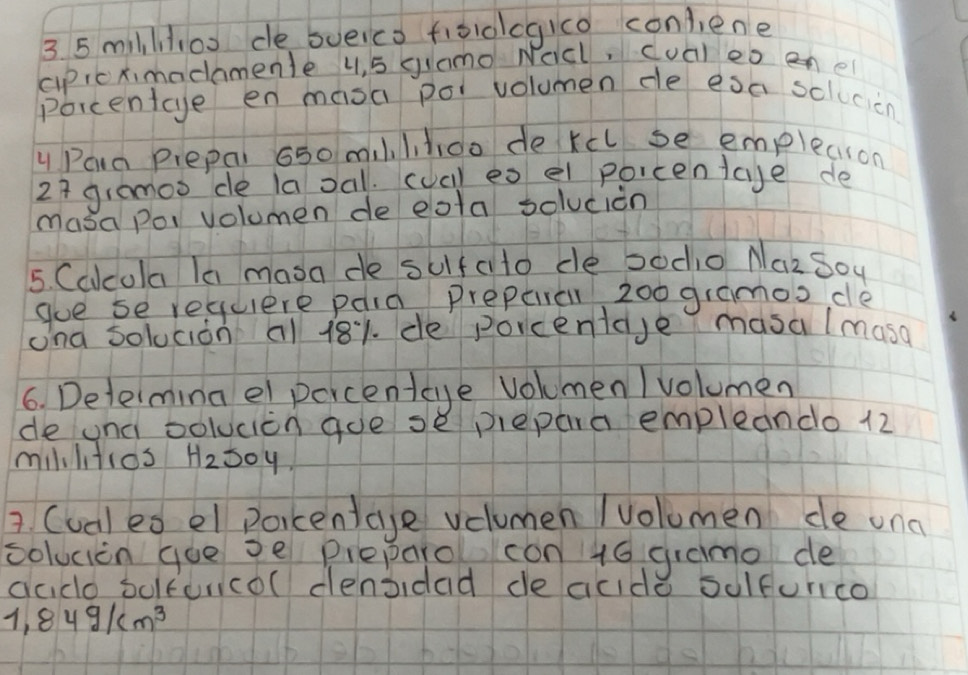 3. 5 mililitros de sueico fisiologico contiene
aproximadamente 4,5 gramo Nacl, cual es en el
porcentaje en masa por volumen de esa solución
4 Para Prepar 650 mililitros de Kcl se emplearon
27 gramos de la sal. cual es el porcentaje de
masa por volumen de esta solución
5. Calcula la masa de sulfato de sodio Na2So4
que se requiere para preparar 200 gramos de
una solución al 18% de porcentaje masa/masa
6. Determina el porcentaje volumen/volumen
de una solución que se prepara empleando 12
mililitros H2so4.
7. Cual es el porcentaje volumen/volumen de una
solución que se preparo con 46 gramo de
acido sulfurico( densidad de acido sulfurico
1,84g/cm³